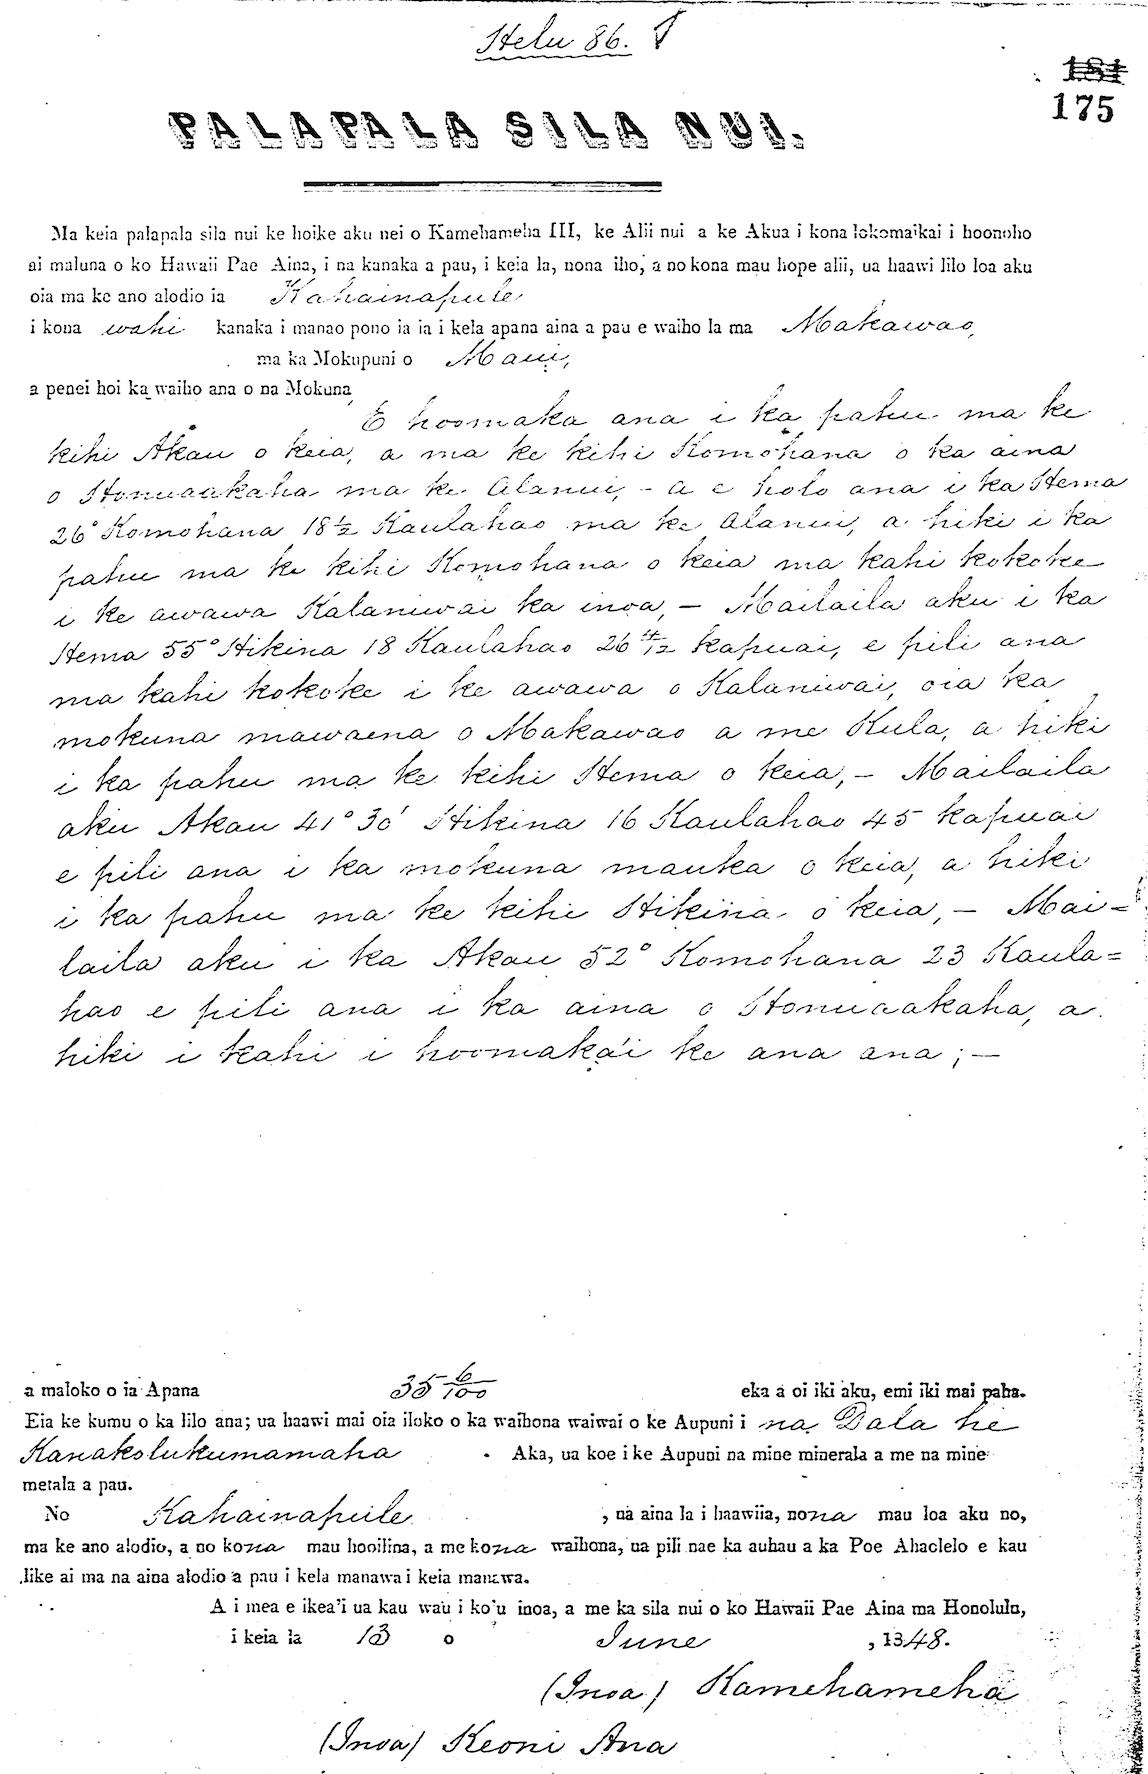 Helu 86.
181
175
PALAPALA SILA NUI.
Ma keia palapala sila nui ke hoike aku nei o Kamehameha III, ke Alii nui a ke Akua i kona lokomaikai i hoonoho
ai maluna o ko Hawaii Pae Aina, i na kanaka a pau, i keia la, nona iho, a no kona mau hope alii, ua haawi lilo loa aku
oia ma ke ano alodio ia Kahainapule
i kona wahi kanaka i manao pono ia ia i kela apana aina a pau e waiho la ma Makawao,
ma ka Mokupuni o Maui,
a penei hoi ka waiho ana o na Mokuna
E hoomaka ana i ka pahu ma ke
kihi Akau o keia, a ma ke kihi Komohana o ka aina
o Honuaakaha ma ke Alanui, - a e holo ana i ka Hema
26° Komohana 18½ Kaulahao ma ke Alanui, a hiki i ka
pahu ma ke kihi Komohana o keia ma kahi kokoke
i ke awawa Kalaniwai ka inoa, – Mailaila aku i ka
Hema 55° Hikina 18 Kaulahao 26 4/12 kapuai, e pili ana
ma kahi kokoke i ke awawa o Kalaniwai, oia ka
mokuna mawaena o Makawao a me Kula, a hiki
i ka pahu ma ke kihi Hema o keia, – Mailaila
aku Akau 41° 30' Hikina 16 Kaulahao 45 kapuai
e pili ana i ka mokuna mauka o keia, a hiki
i ka pahu ma ke kihi Hikina o keia, – Mai=
laila aku i ka Akau 52° Komohana 23 Kaula=
hao e pili ana i ka aina o Honuaakaha, a
hiki i kahi i hoomaka'i ke ana ana ; –
a maloko o ia Apana 35 6/100 eka a oi iki aku, emi iki mai paha.
Eia ke kumu o ka lilo ana; ua haawi mai oia iloko o ka waihona waiwai o ke Aupuni i na Dala he
Kanakolukumamaha . Aka, ua koe i ke Aupuni na mine minerala a me na mine
metala a pau.
No Kahainapule , na aina la i haawiia, nona mau loa aku no,
ma ke ano alodio, a no kona mau hooilina, a me kona waihona, ua pili nae ka auhau a ka Poe Ahaolelo e kau
like ai ma na aina alodio a pau i kela manawa i keia manawa.
A i mea e ikea'i ua kau wau i ko'u inoa, a me ka sila nui o ko Hawaii Pae Aina ma Honolulu,
i keia la 13 o June , 1848.
(Inoa) Kamehameha
(Inoa) Keoni Ana